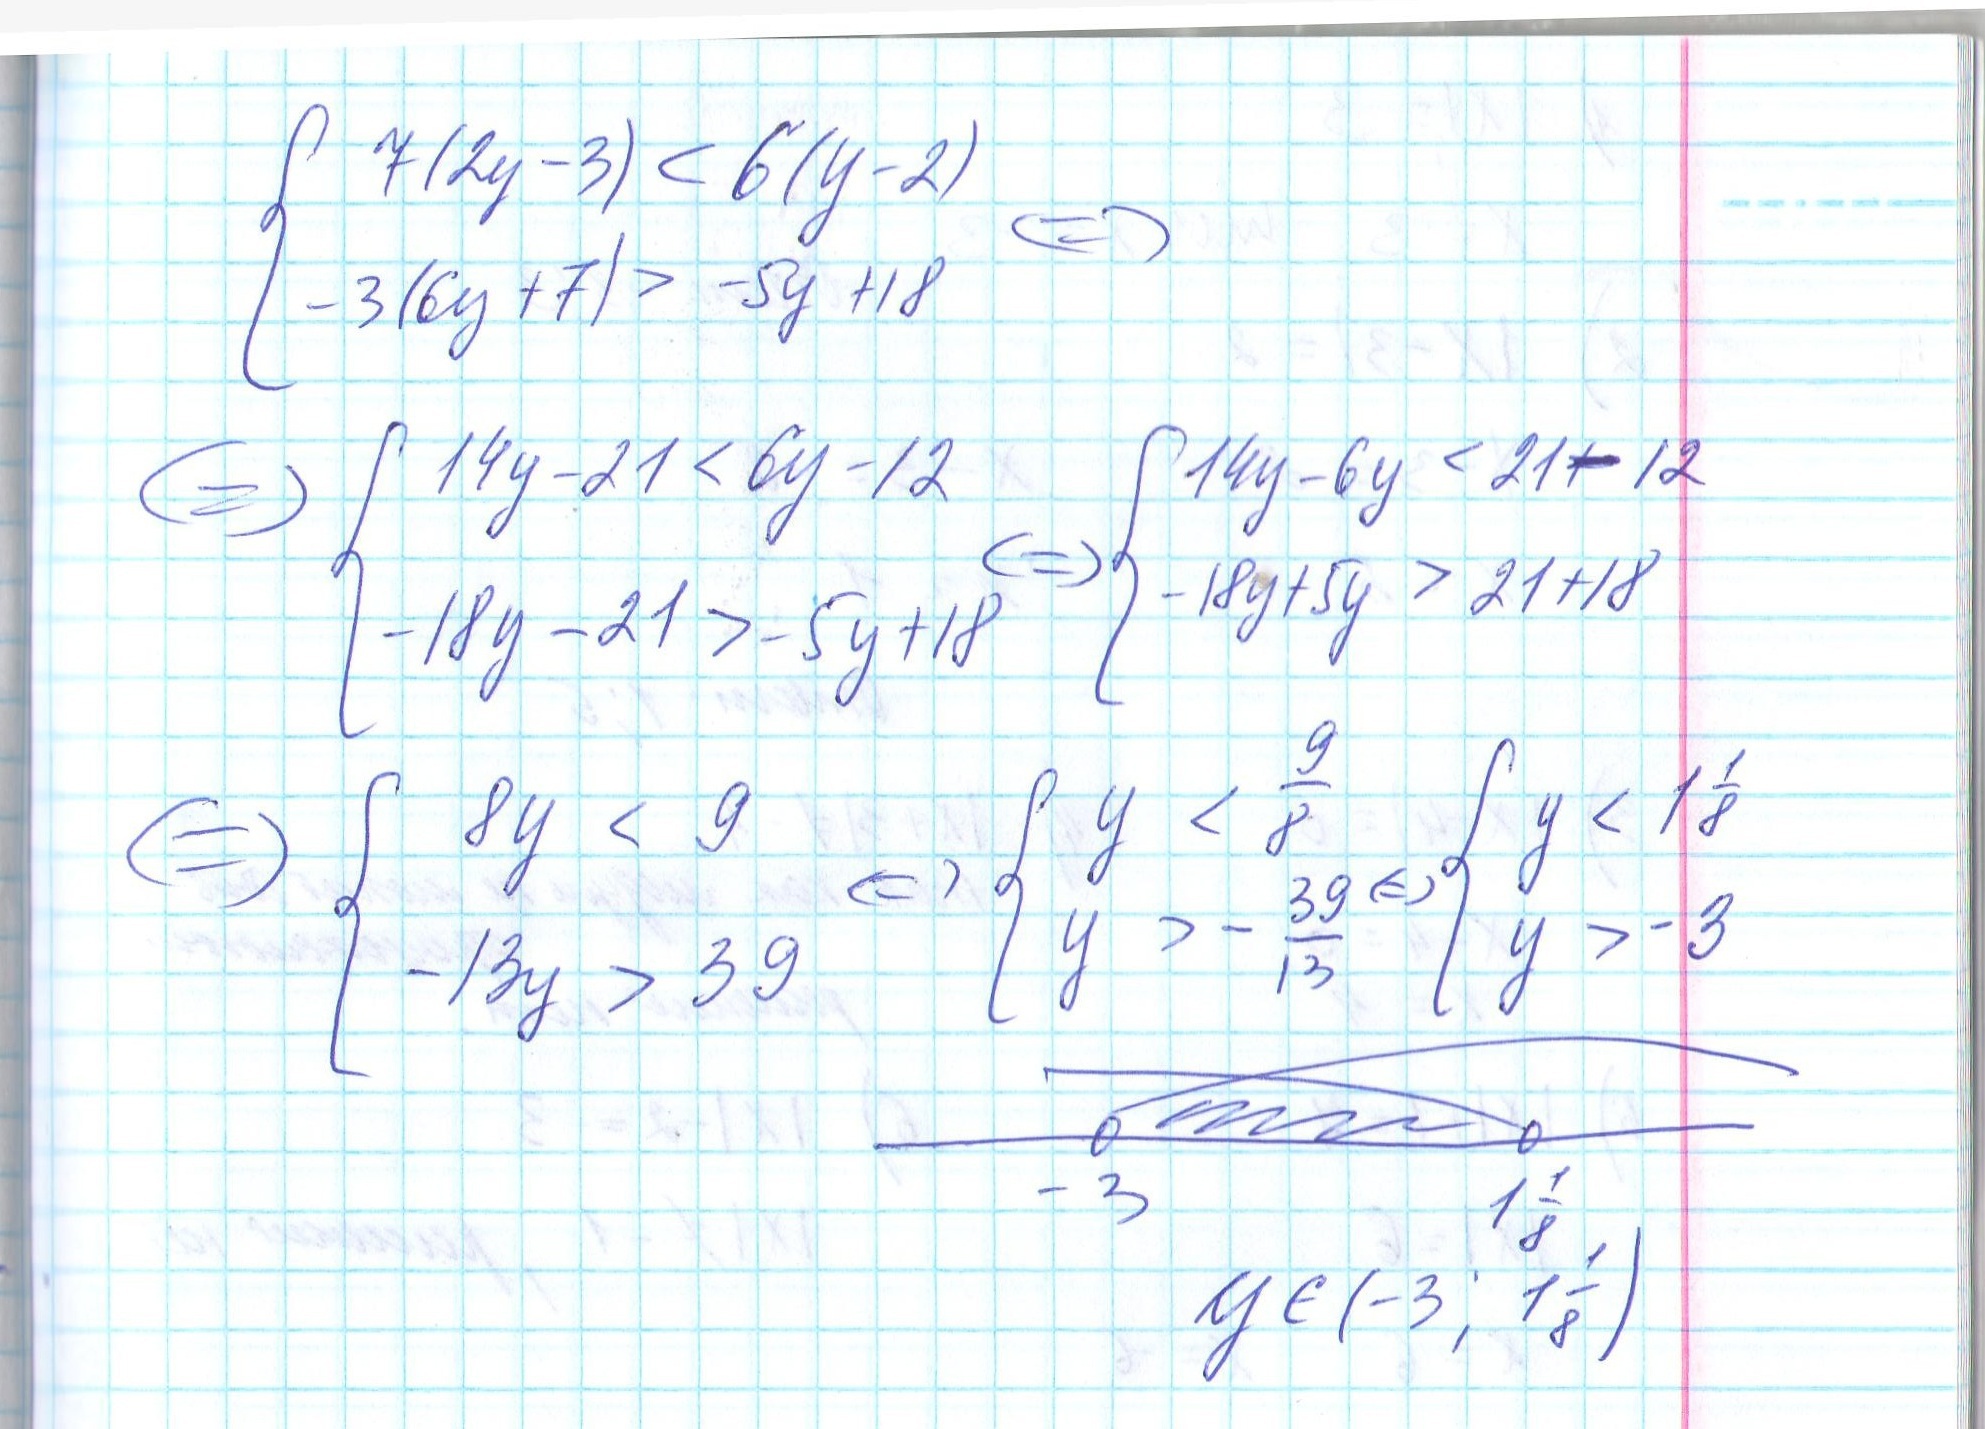 { 7(2y-3) < 6(y-2)
-3(6y+7) > -5y+18 <=>
<=> { 14y-21 < 6y-12
-18y-21 > -5y+18
<=> { 14y-6y < 21-12
-18y+5y > 21+18
<=> { 8y < 9
-13y > 39
<=> { y < 9/8
y > -39/13
<=> { y < 1 1/8
y > -3
-3 1 1/8
y ∈ (-3; 1 1/8)